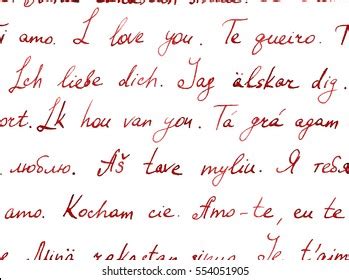 i amo. I love you. Te queiro. T
Ich liebe dich. Jag älskar dig.
ort. Ik hou van you. Tá grá agam
люблю. Aš tave myliu. Я тебя
amo. Kocham cie. Amo-te, eu te
Minä rakastan sinua. Je t'aim
shutterstock.com · 554051905